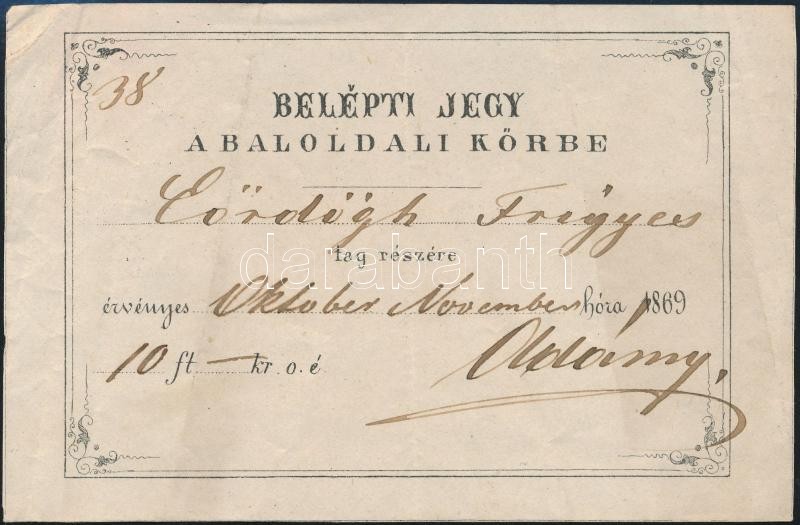 38
BELÉPTI JEGY
A BALOLDALI KÖRBE
Eördögh Frigyes
tag részére
darabanth
érvényes Oktober November hóra 1869
10 ft — kr o. é